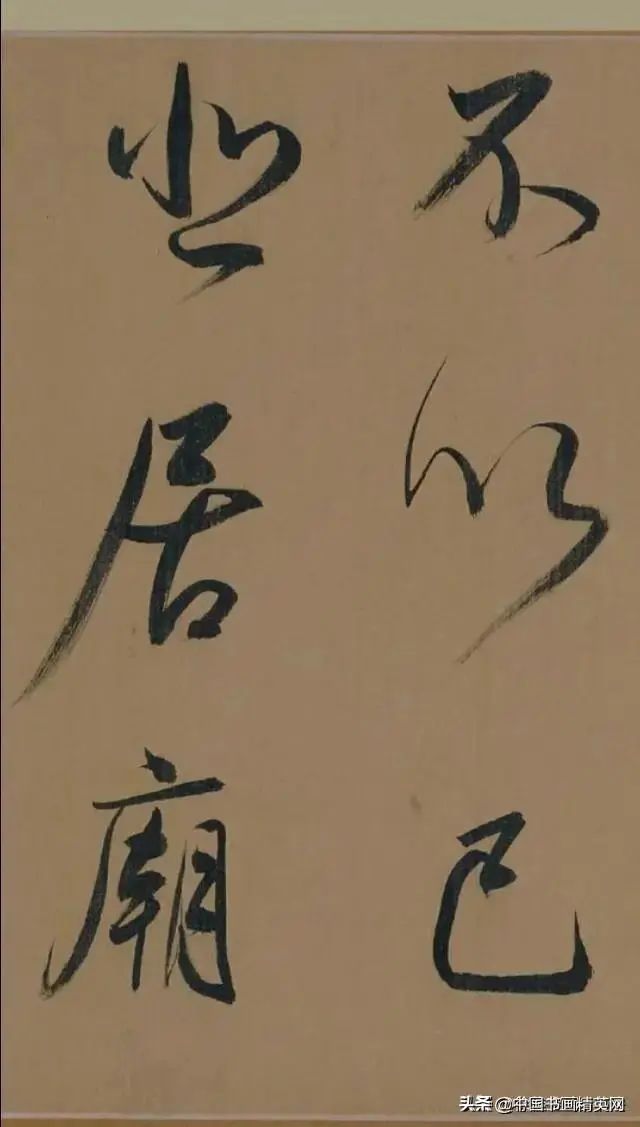 不以己
悲居廟
头条 @中国书画精英网